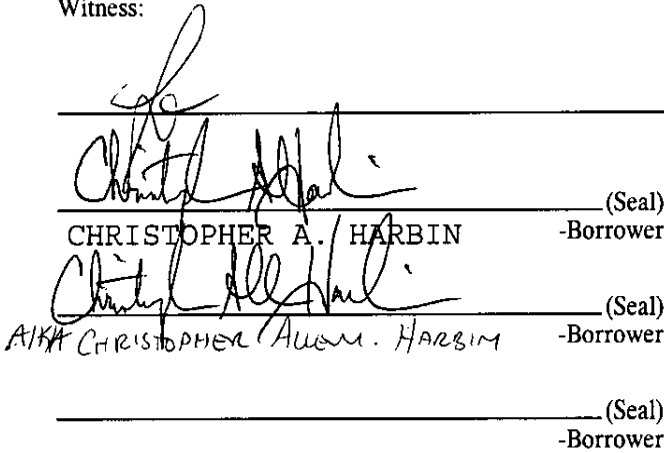 Witness:
(Seal)
CHRISTOPHER A. HARBIN -Borrower
(Seal)
A/K/A CHRISTOPHER ALLEN HARBIN -Borrower
(Seal)
-Borrower